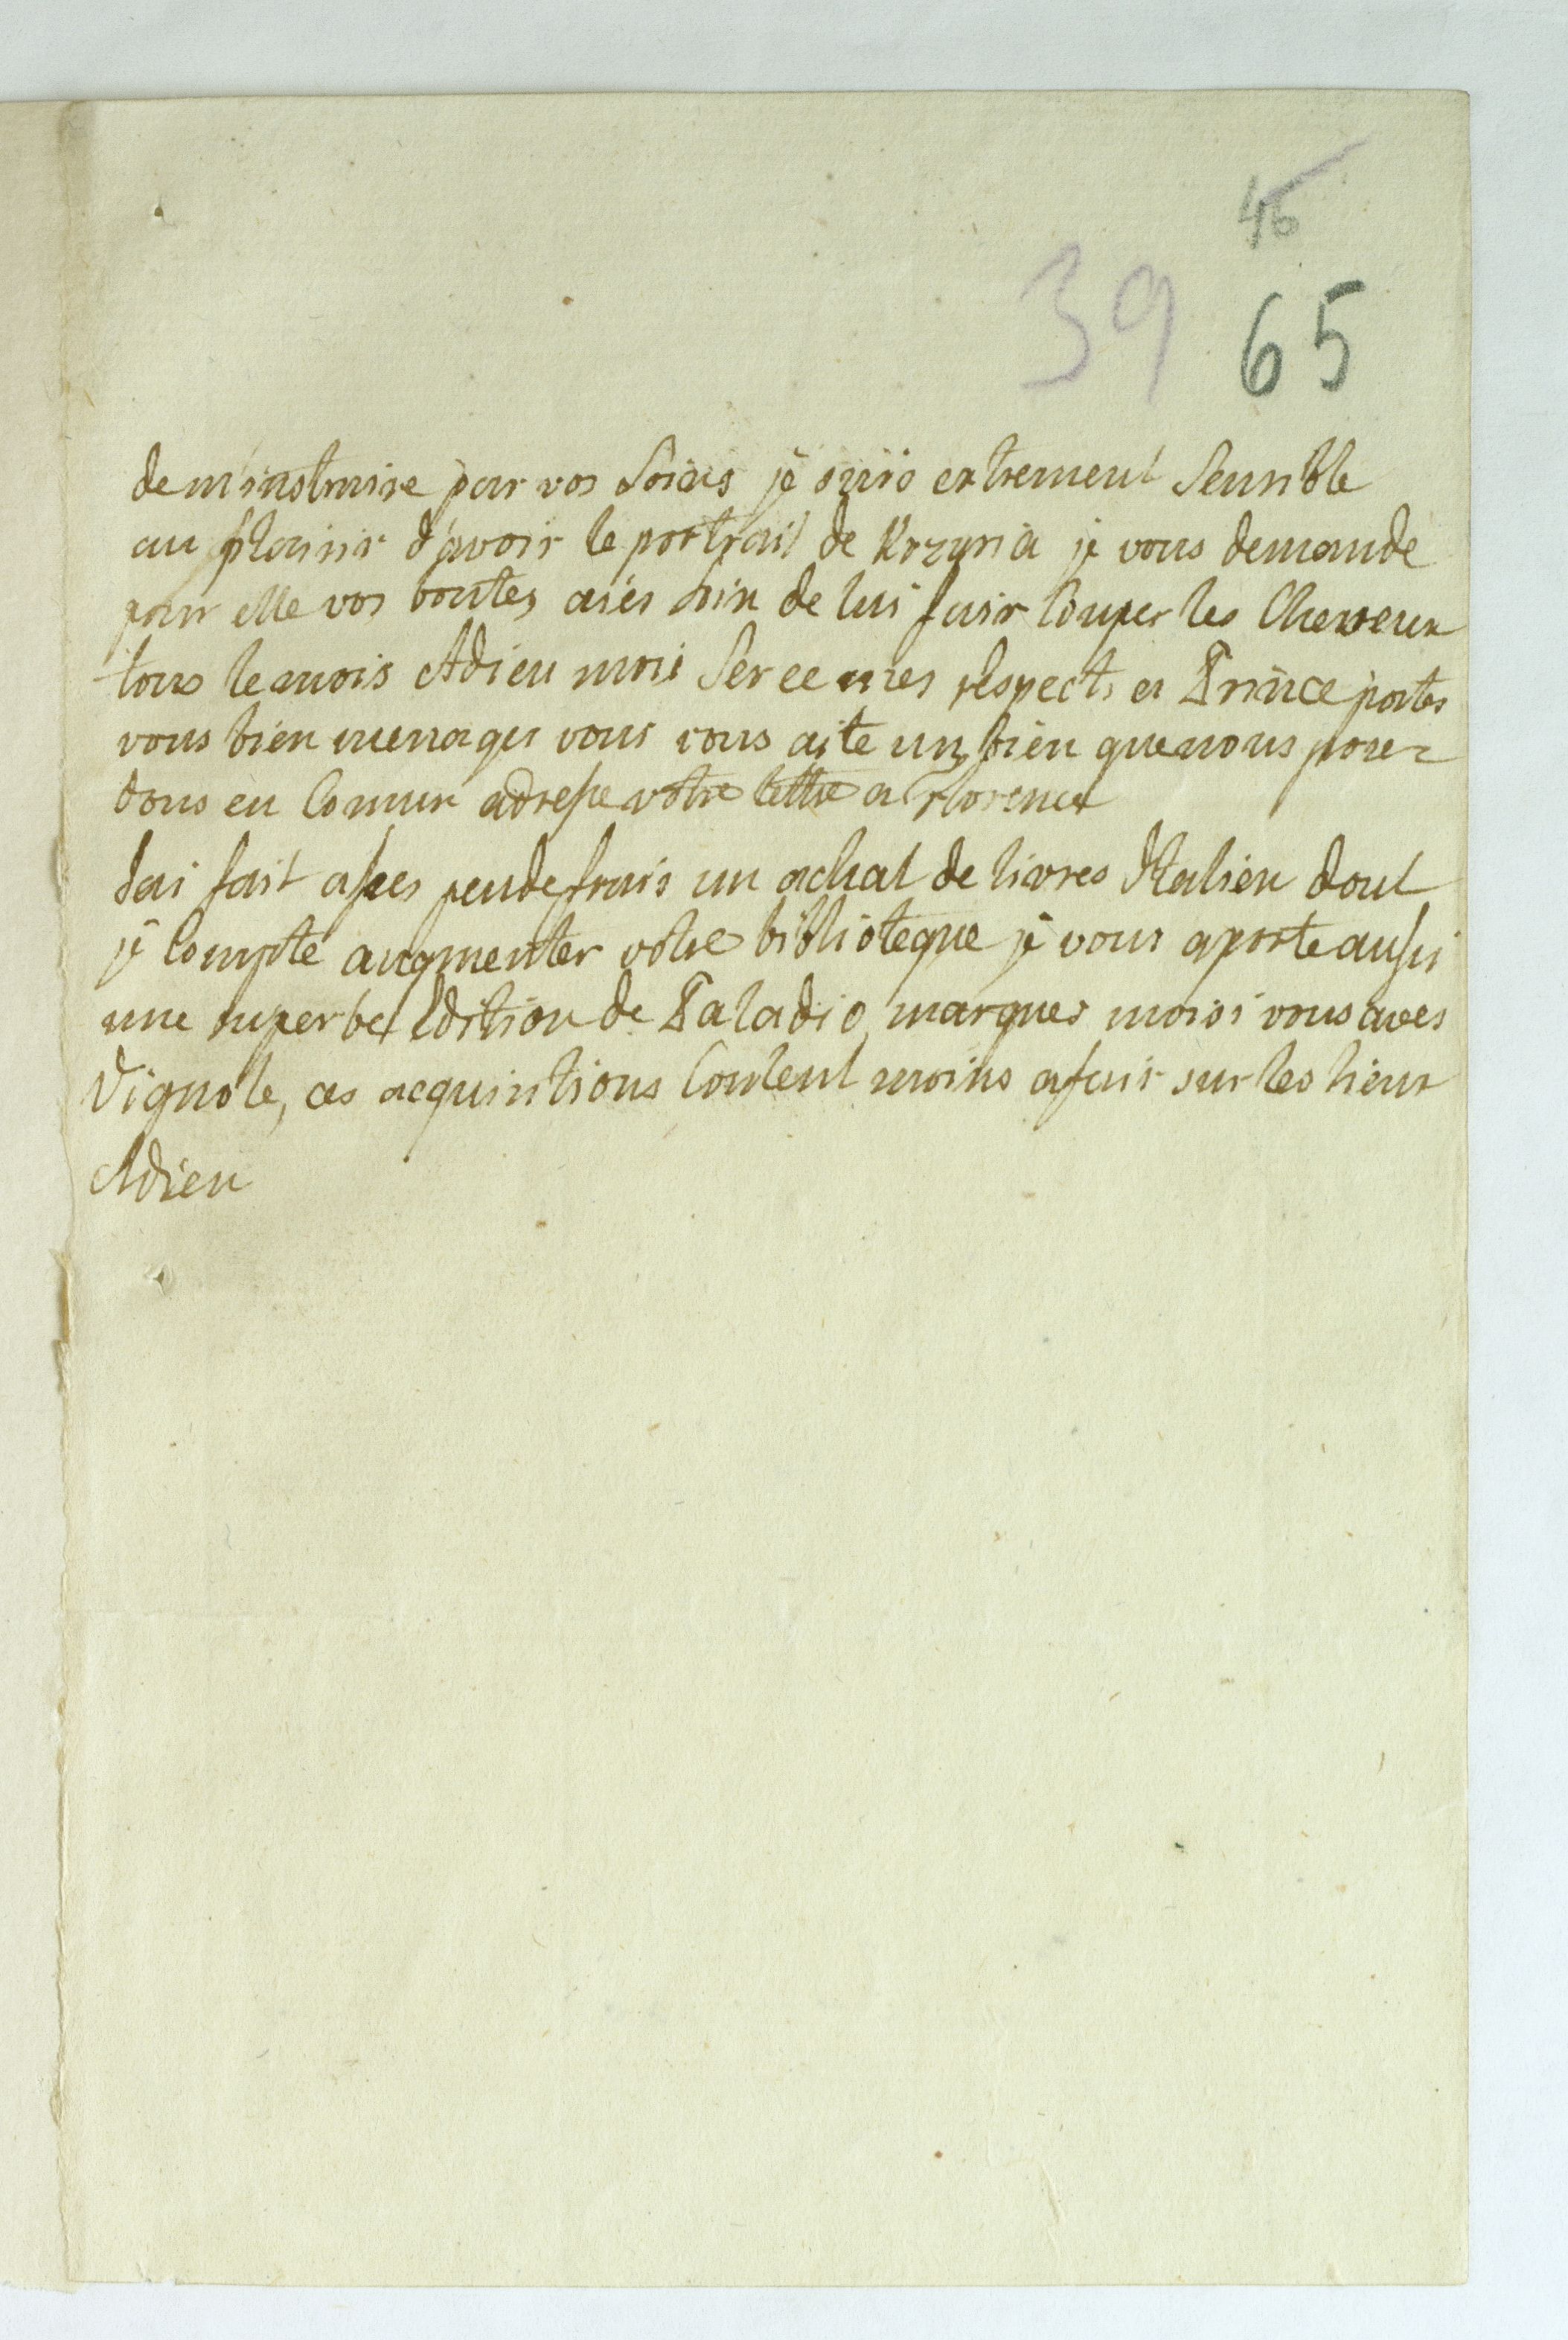 46
39 65
de m'instruire par vos soins je suis extrement sensible
au plaisir d'avoir le portrait de Krzysia je vous demande
pour elle vos bontes aiés soin de lui fair Couper les Cheveux
tous le mois Adieu mon mes respects au Prince portes
vous bien menages vous vous aite un bien que nous posse-
dons en Comun adresse votre lettre a Florence
Jai fait asses peu de frais un achat de livres Italien dont
je Compte augmenter votre biblioteque je vous aporte aussi
une superbe Edition de Paladio marques moi si vous aves
Vignole, ces acquisitions Coutent moins a fair sur les lieux
Adieu